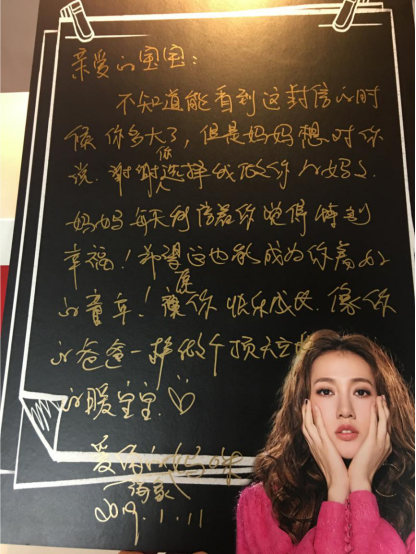 亲爱的宝宝：
不知道能看到这封信的时
候 你多大了，但是妈妈想对你
说.谢谢你选择我做你的妈妈.
妈妈每天你觉得特别
幸福！希望这也能成为你
的童年！愿你快乐成长.像你
的爸爸一样做个顶天立地
的暖宝宝.♡
爱你的妈咪
2019.1.11